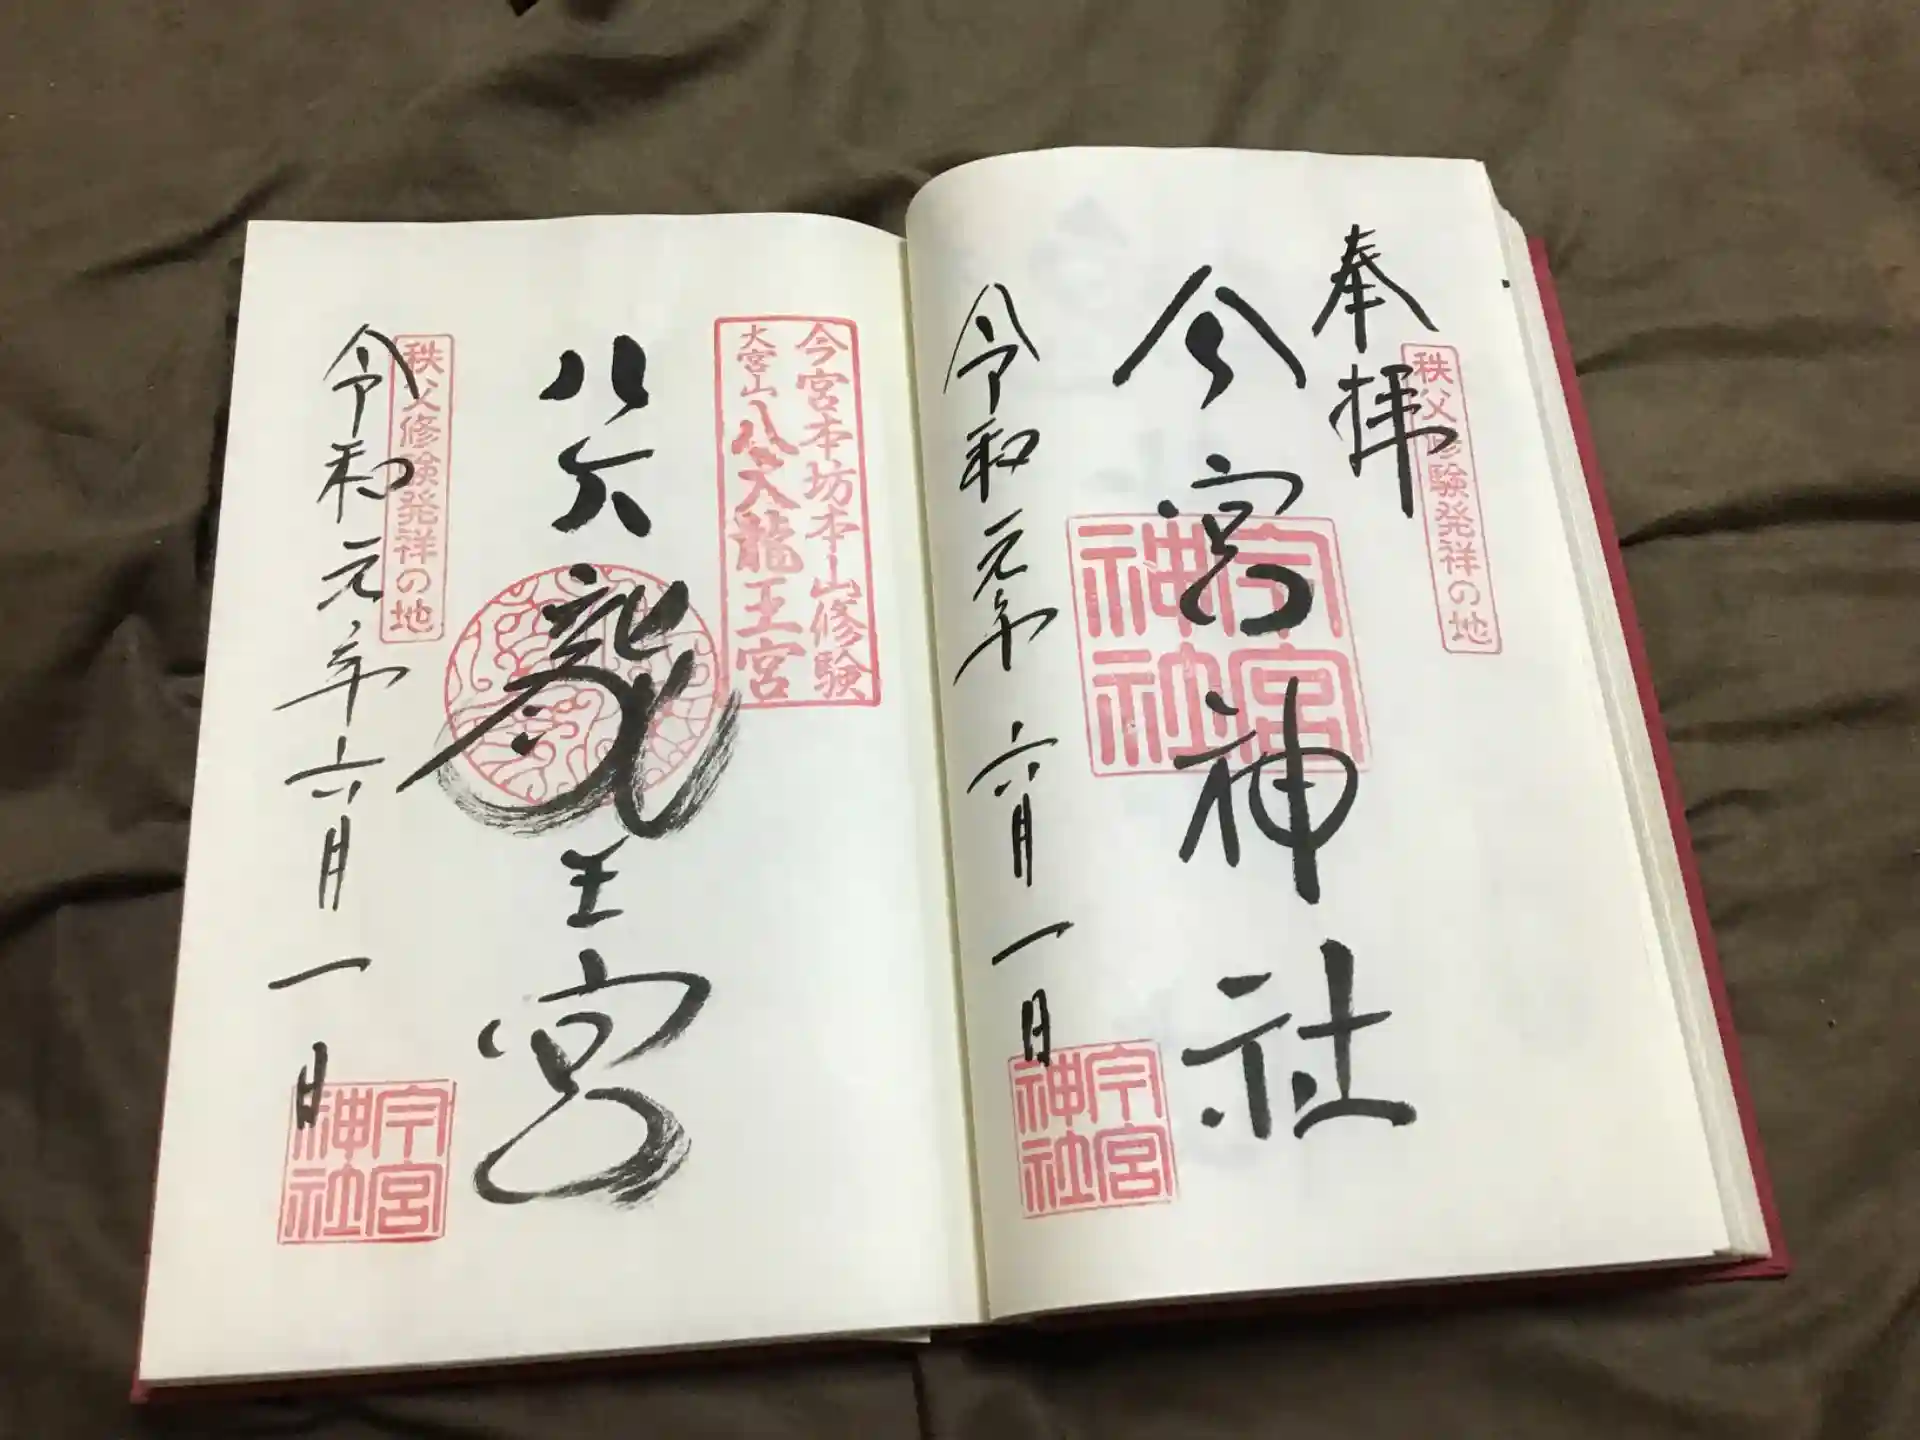 奉拝
秩父修験発祥の地
今宮神社
今宮神社
令和元年六月一日
今宮神社
今宮本坊本山修験
大宮山八大龍王宮
八大龍王宮
秩父修験発祥の地
令和元年六月一日
今宮神社